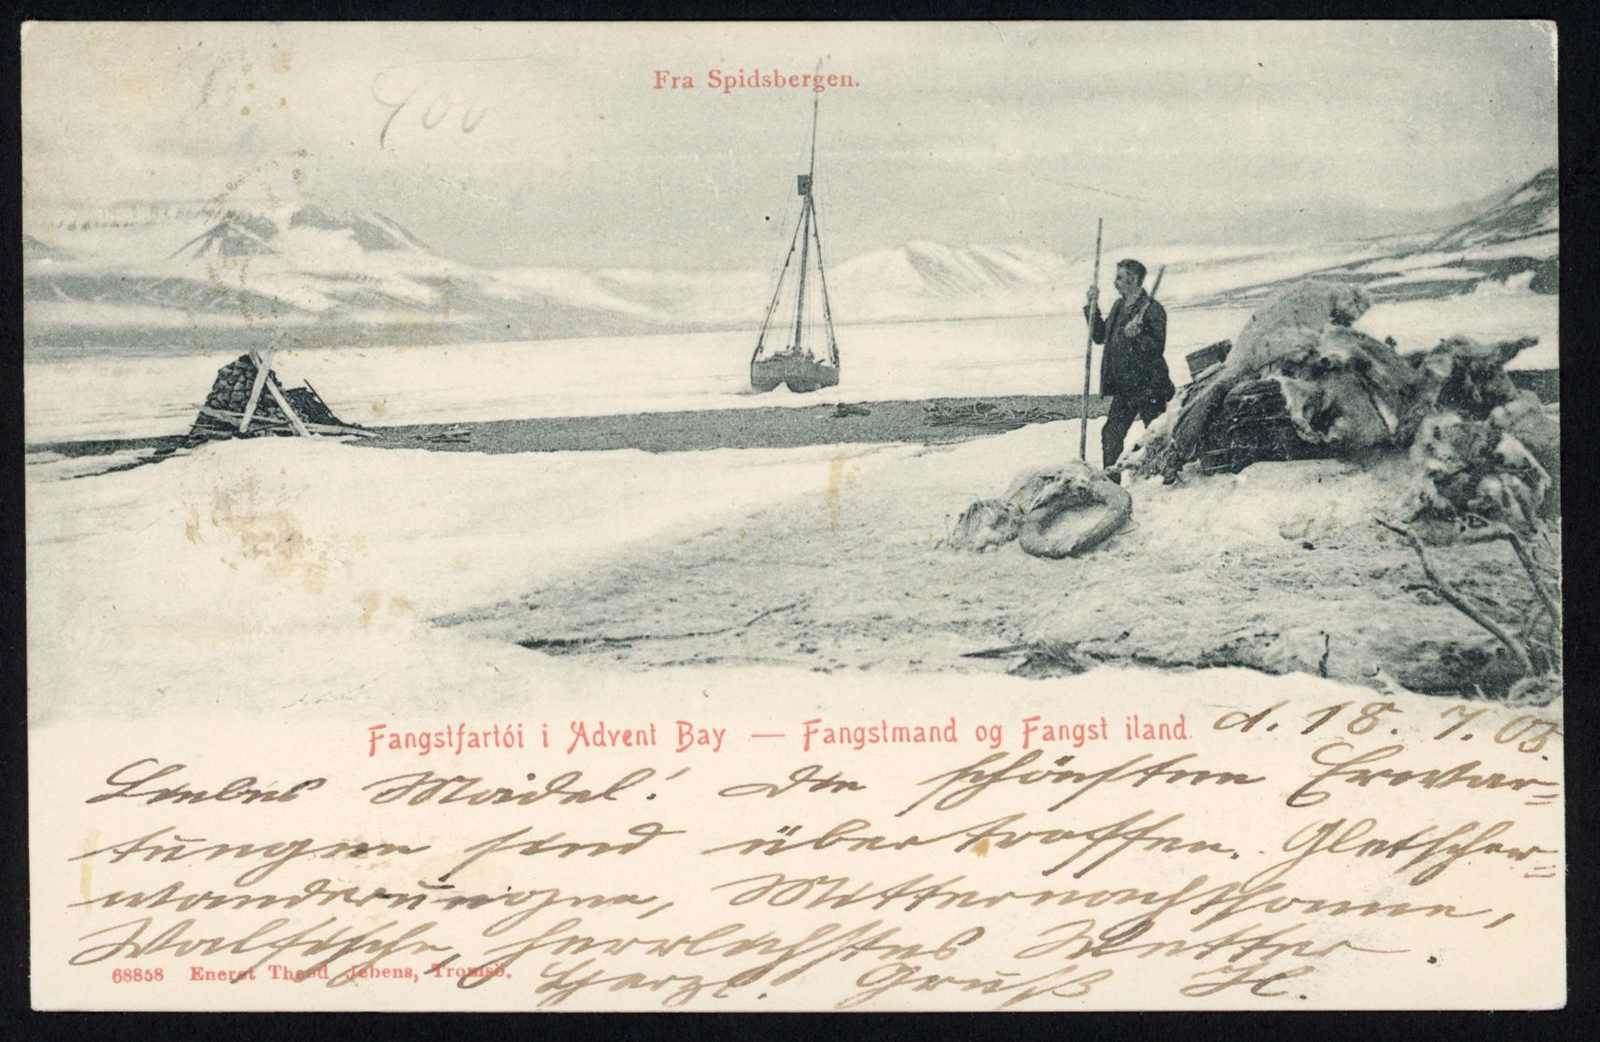 Fra Spidsbergen.
900
Fangstfartói i Advent Bay — Fangstmand og Fangst iland.
d. 18. 7. 05.
Liebes Mädel! Die schönsten Erwar=
tungen sind übertroffen. Gletscher=
wanderungen, Mitternachtsonne,
Walfische, herrlichstes Wetter.
68858 Eneret Theod Jebens, Tromsö.
Herzl. Gruß H.